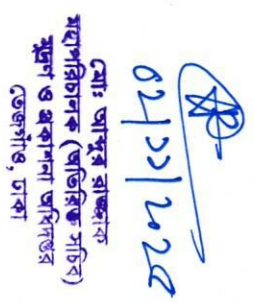 ০২/১১/২০২৫
মোঃ আব্দুর রাজ্জাক
মহাপরিচালক (অতিরিক্ত সচিব)
মুদ্রণ ও প্রকাশনা অধিদপ্তর
তেজগাঁও, ঢাকা